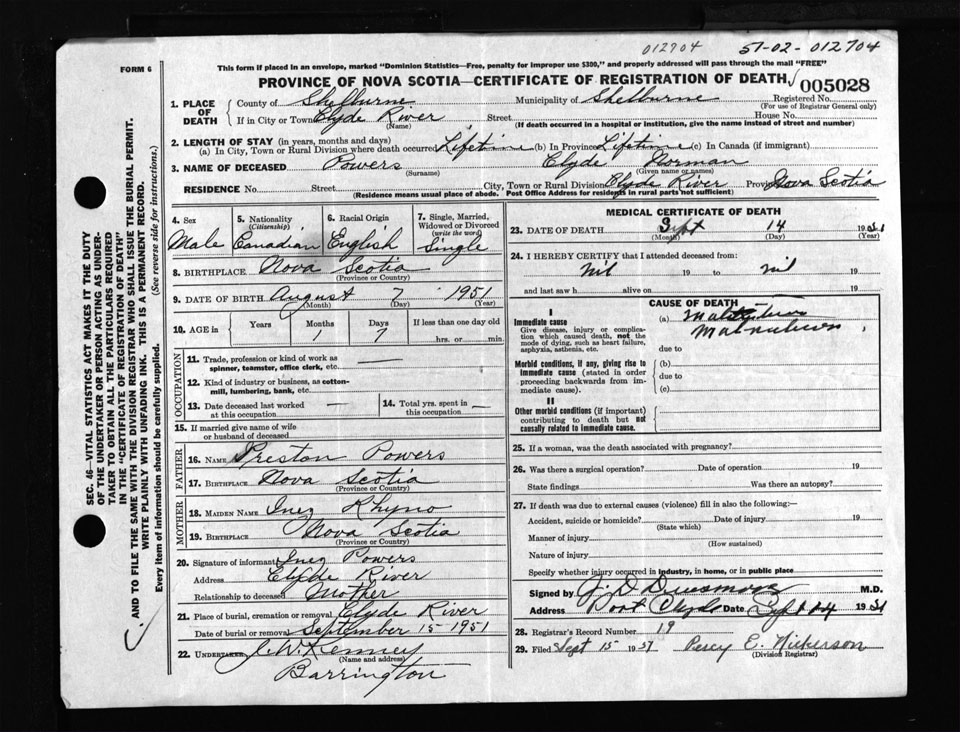 012704 51-02-012704
FORM 6
This form if placed in an envelope, marked "Dominion Statistics—Free, penalty for improper use $300," and properly addressed will pass through the mail "FREE"
PROVINCE OF NOVA SCOTIA—CERTIFICATE OF REGISTRATION OF DEATH 005028
1. PLACE OF DEATH
County of Shelburne Municipality of Shelburne Registered No.
(For use of Registrar General only)
If in City or Town Clyde River Street House No.
(Name) (If death occurred in a hospital or institution, give the name instead of street and number)
2. LENGTH OF STAY (in years, months and days)
(a) In City, Town or Rural Division where death occurred Lifetime (b) In Province Lifetime (c) In Canada (if immigrant)
3. NAME OF DECEASED Powers Clyde Norman
(Surname) (Given name or names)
RESIDENCE No. Street City, Town or Rural Division Clyde River Province Nova Scotia
(Residence means usual place of abode. Post Office Address for residents in rural parts not sufficient)
4. Sex
Male
5. Nationality
(Citizenship)
Canadian
6. Racial Origin
English
7. Single, Married,
Widowed or Divorced
(write the word)
Single
8. BIRTHPLACE Nova Scotia
(Province or Country)
9. DATE OF BIRTH August 7 1951
(Month) (Day) (Year)
10. AGE in
Years Months Days If less than one day old
1 7 hrs. or min.
OCCUPATION
11. Trade, profession or kind of work as
spinner, teamster, office clerk, etc. —
12. Kind of industry or business, as cotton-
mill, lumbering, bank, etc. —
13. Date deceased last worked
at this occupation —
14. Total yrs. spent in
this occupation —
15. If married give name of wife
or husband of deceased
FATHER
16. NAME Preston Powers
17. BIRTHPLACE Nova Scotia
(Province or Country)
MOTHER
18. MAIDEN NAME Inez Rhyno
19. BIRTHPLACE Nova Scotia
(Province or Country)
20. Signature of informant Inez Powers
Address Clyde River
Relationship to deceased Mother
21. Place of burial, cremation or removal Clyde River
Date of burial or removal September 15-1951
22. UNDERTAKER J. W. Kenney
(Name and address)
Barrington
MEDICAL CERTIFICATE OF DEATH
23. DATE OF DEATH Sept 14 1951
(Month) (Day) (Year)
24. I HEREBY CERTIFY that I attended deceased from:
Nil 19 to nil 19
and last saw h alive on 19
CAUSE OF DEATH
I
Immediate cause
Give disease, injury or complica-
tion which caused death, not the
mode of dying, such as heart failure,
asphyxia, asthenia, etc.
(a) Malnutrition
due to
Morbid conditions, if any, giving rise to
immediate cause (stated in order
proceeding backwards from im-
mediate cause).
(b)
due to
(c)
II
Other morbid conditions (if important)
contributing to death but not
causally related to immediate cause.
25. If a woman, was the death associated with pregnancy?
26. Was there a surgical operation? Date of operation 19
State findings Was there an autopsy?
27. If death was due to external causes (violence) fill in also the following:—
Accident, suicide or homicide? Date of injury 19
(State which)
Manner of injury
(How sustained)
Nature of injury
Specify whether injury occurred in industry, in home, or in public place
Signed by M.D.
Address Port Clyde Date Sept 14 1951
28. Registrar's Record Number 19
29. Filed Sept 15 1951 Percy E. Nickerson
(Division Registrar)
SEC. 46—VITAL STATISTICS ACT MAKES IT THE DUTY
OF THE UNDERTAKER OR PERSON ACTING AS UNDER-
TAKER TO OBTAIN ALL THE PARTICULARS REQUIRED
IN THE "CERTIFICATE OF REGISTRATION OF DEATH"
AND TO FILE THE SAME WITH THE DIVISION REGISTRAR WHO SHALL ISSUE THE BURIAL PERMIT.
WRITE PLAINLY WITH UNFADING INK. THIS IS A PERMANENT RECORD.
Every item of information should be carefully supplied. (See reverse side for instructions.)